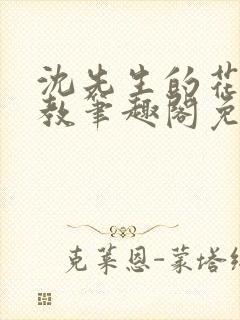 沈先生的花
教笔趣阁免
克莱恩-蒙塔纳